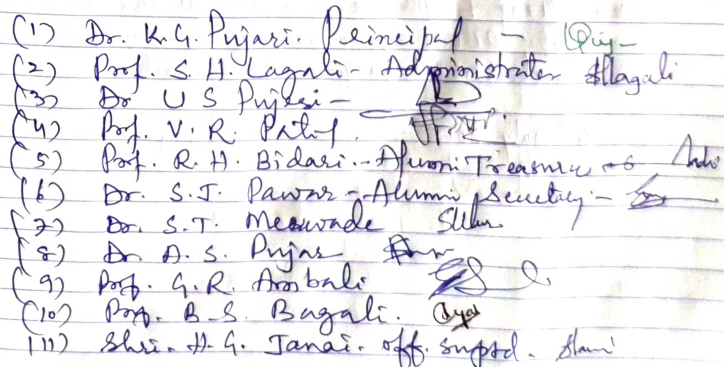 (1) Dr. K.G. Pujari. Principal -
(2) Prof. S. H. Lagali - Administrater Slagali
(3) Dr U S Pujari -
(4) Prof. V. R. Patil.
(5) Prof. R. H. Bidari. - Alumni Treasurer
(6) Dr. S.J. Pawar - Alumni Secretary -
(7) Dr. S.T. Merawade
(8) Dr. A. S. Pujar
(9) Prof. G. R. Ambali
(10) Prof. B. S. Bagali.
(11) Shri. H. G. Janai. off. suptd.